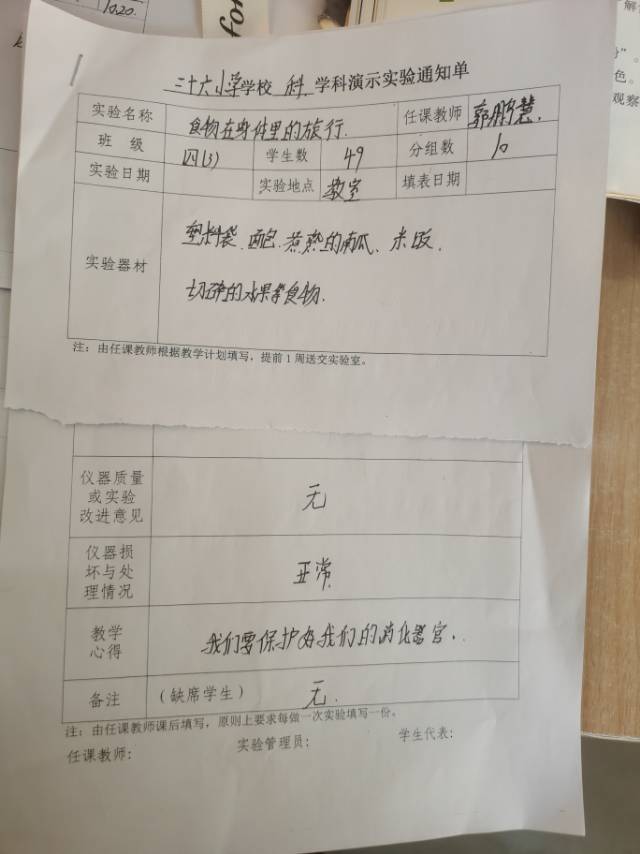 10.20.
for
二十六小学学校 科 学科演示实验通知单
实验名称 食物在身体里的旅行. 任课教师 郭鹏慧.
班 级 四(3) 学生数 49 分组数 10
实验日期 实验地点 教室 填表日期
实验器材 塑料袋、面包、煮熟的南瓜、米饭、
切碎的水果等食物.
注：由任课教师根据教学计划填写，提前1周送交实验室。
仪器质量
或实验
改进意见
无
仪器损
坏与处
理情况
正常
教学
心得
我们要保护好我们的消化器官.
备注 （缺席学生） 无.
注：由任课教师课后填写，原则上要求每做一次实验填写一份。
任课教师： 实验管理员： 学生代表：
解
色。
观察